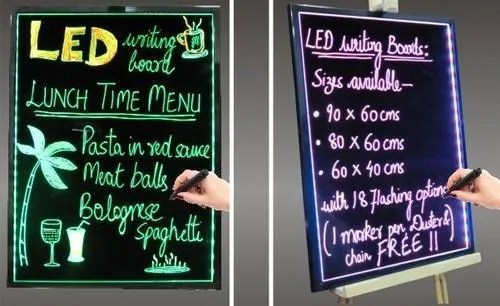 LED writing
board
LUNCH TIME MENU
Pasta in red sauce
Meat balls
Bolognese
spaghetti
LED Writing Boards:
Sizes available—
• 90 x 60 cms
• 80 x 60 cms
• 60 x 40 cms
with 18 flashing options
(1 marker pen, Duster &
chain FREE !!)